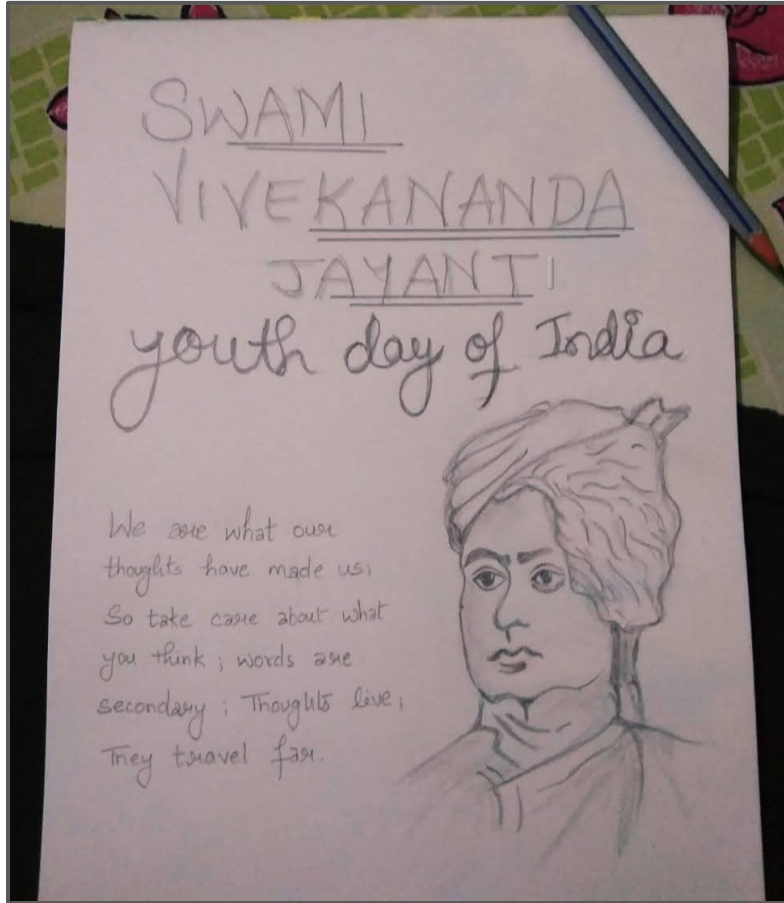 SWAMI
VIVEKANANDA
JAYANTI
youth day of India
We are what our
thoughts have made us;
So take care about what
you think ; words are
secondary ; Thoughts live ;
They travel far.